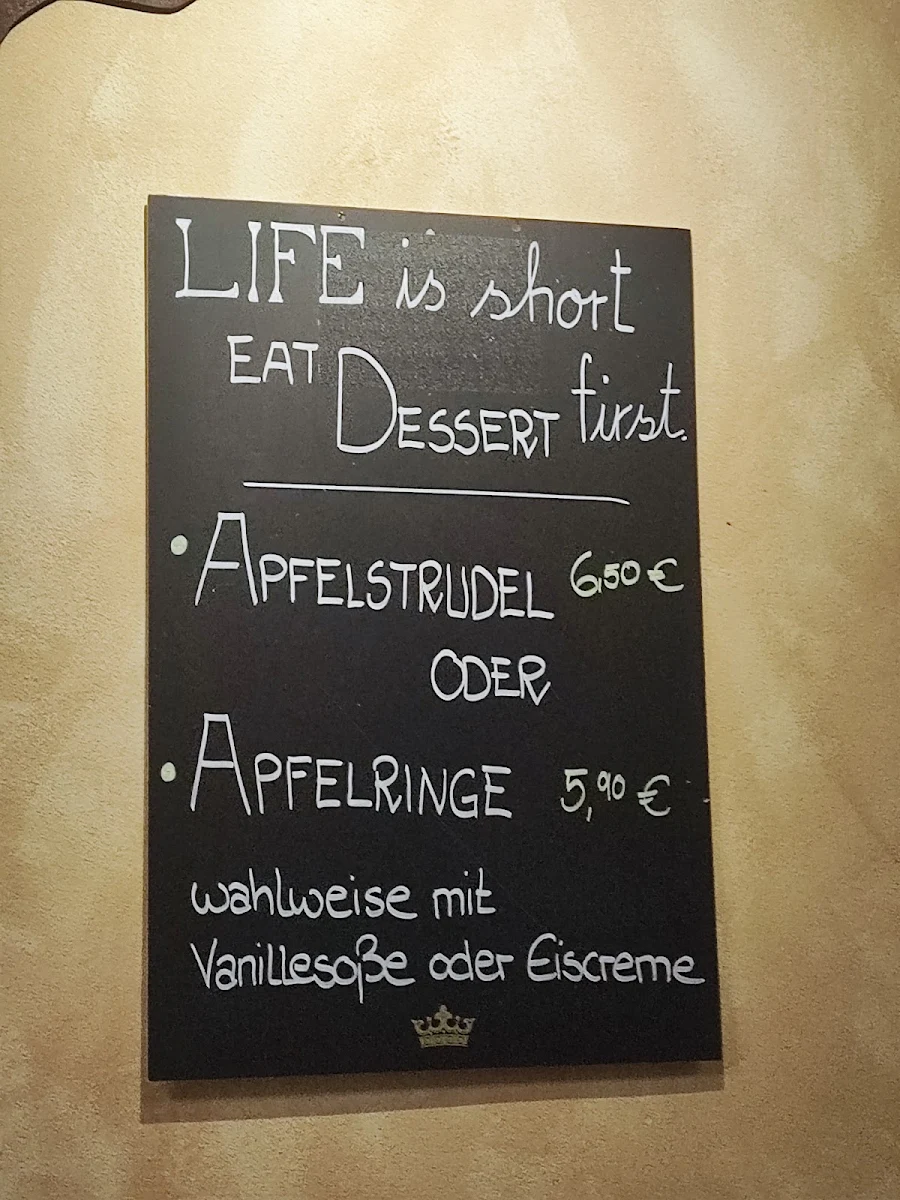 LIFE is short
EAT DESSERT first.
• APFELSTRUDEL 6,50 €
ODER
• APFELRINGE 5,90 €
wahlweise mit
Vanillesoße oder Eiscreme